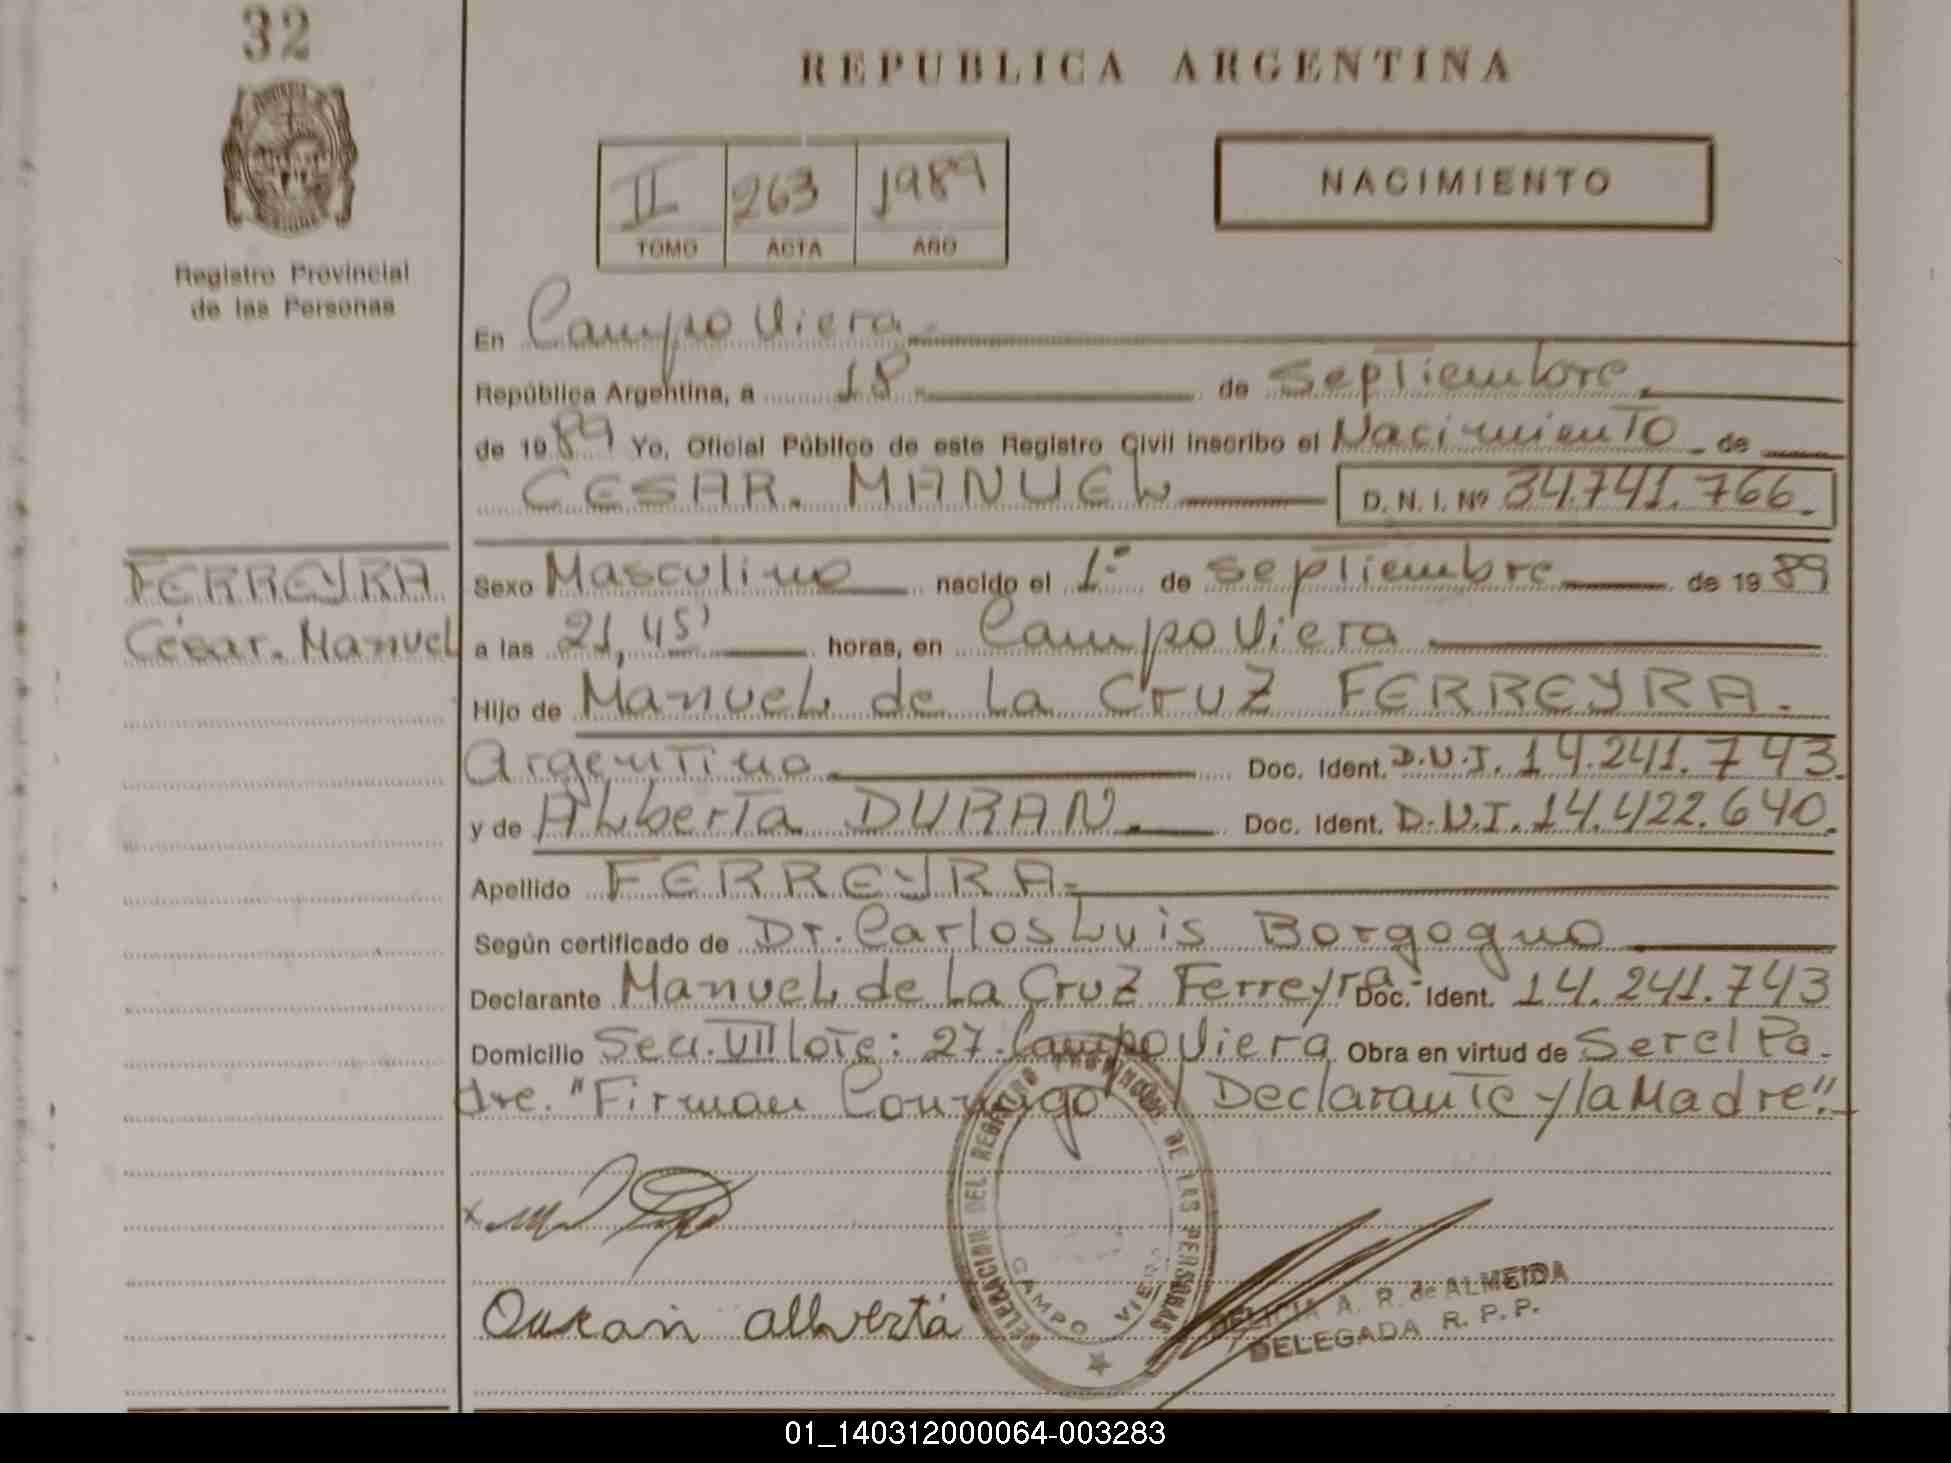 32
REPUBLICA ARGENTINA
II 263 1989
TOMO ACTA AÑO
NACIMIENTO
Registro Provincial
de las Personas
En Campo Viera
República Argentina, a 18 de septiembre
de 1989 Yo, Oficial Público de este Registro Civil inscribo el Nacimiento de
CESAR. MANUEL D. N. I. Nº 34.741.766.
FERREYRA
César. Manuel
Sexo Masculino nacido el 1º de septiembre de 1989
a las 21,45' horas, en Campo Viera
Hijo de Manuel de La Cruz FERREYRA.
Argentino Doc. Ident. D.N.I. 14.241.743.
y de ALberta DURAN. Doc. Ident. D.N.I. 14.422.640.
Apellido FERREYRA
Según certificado de Dr. Carlos Luis Borgogno
Declarante Manuel de La Cruz Ferreyra Doc. Ident. 14.241.743
Domicilio Secc. VII Lote: 27. Campo Viera Obra en virtud de Ser el Pa-
dre. "Firman Conmigo Declarante y la Madre".
DELEGACION DEL REGISTRO PROVINCIAL DE LAS PERSONAS
CAMPO VIERA
Duran alberta
DELICIA A. R. de ALMEIDA
DELEGADA R. P. P.
01_140312000064-003283